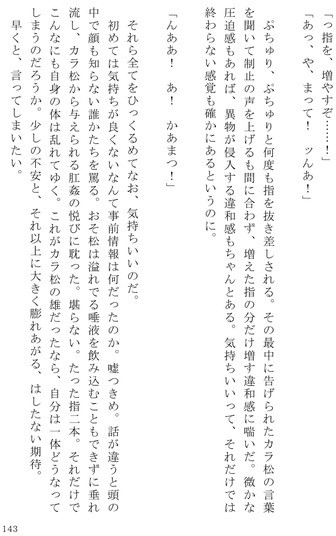 「っ指を、増やすぞ……！」
「あっ、や、まって！　ッんあ！」
　ぷちゅり、ぷちゅりと何度も指を抜き差しされる。その最中に告げられたカラ松の言葉
を聞いて制止の声を上げるも間に合わず、増えた指の分だけ増す違和感に喘いだ。微かな
圧迫感もあれば、異物が侵入する違和感もちゃんとある。気持ちいいって、それだけでは
終わらない感覚も確かにあるというのに。
「んああ！　あ！　かあまつ！」
　それら全てをひっくるめてなお、気持ちいいのだ。
　初めては気持ちが良くないなんて事前情報は何だったのか。嘘つきめ。話が違うと頭の
中で顔も知らない誰かたちを罵る。おそ松は溢れでる唾液を飲み込むこともできずに垂れ
流し、カラ松から与えられる肛姦の悦びに耽った。堪らない。たった指二本。それだけで
こんなにも自身の体は乱れてゆく。これがカラ松の雄だったなら、自分は一体どうなって
しまうのだろうか。少しの不安と、それ以上に大きく膨れあがる、はしたない期待。
　早くと、言ってしまいたい。
143